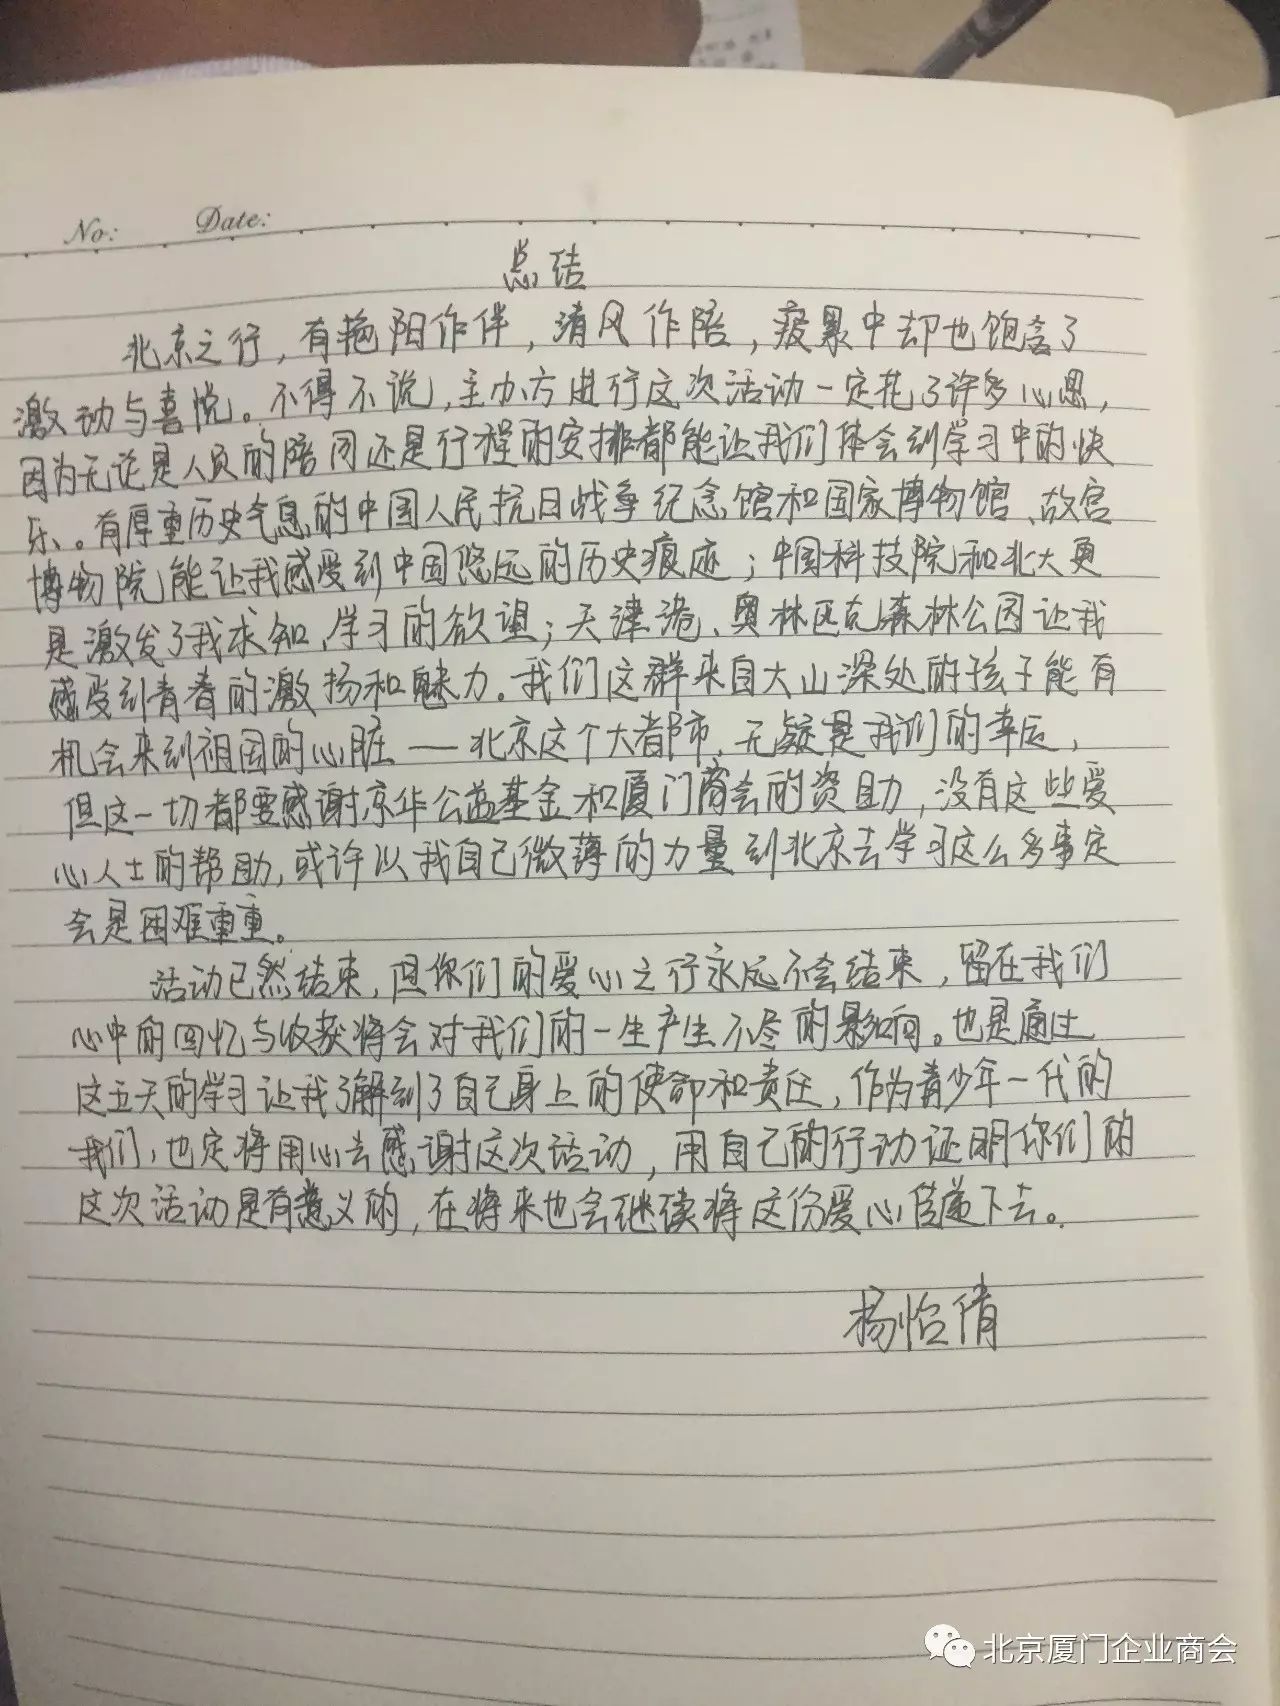 No: Date:
总结
北京之行，有艳阳作伴，清风作陪，疲累中却也饱含了
激动与喜悦。不得不说，主办方进行这次活动一定花了许多心思，
因为无论是人员的陪同还是行程的安排都能让我们体会到学习中的快
乐。有厚重历史气息的中国人民抗日战争纪念馆和国家博物馆、故宫
博物院能让我感受到中国悠远的历史痕迹；中国科技院和北大更
是激发了我求知、学习的欲望；天津港、奥林匹克森林公园让我
感受到青春的激扬和魅力。我们这群来自大山深处的孩子能有
机会来到祖国的心脏——北京这个大都市，无疑是我们的幸运，
但这一切都要感谢京华公益基金和厦门商会的资助，没有这些爱
心人士的帮助，或许以我自己微薄的力量到北京去学习这么多事定
会是困难重重。
活动已然结束，但你们的爱心之行永远不会结束，留在我们
心中的回忆与收获将会对我们的一生产生不尽的影响。也是通过
这五天的学习让我了解到了自己身上的使命和责任，作为青少年一代的
我们，也定将用心去感谢这次活动，用自己的行动证明你们的
这次活动是有意义的，在将来也会继续将这份爱心传递下去。
杨怡倩
北京厦门企业商会